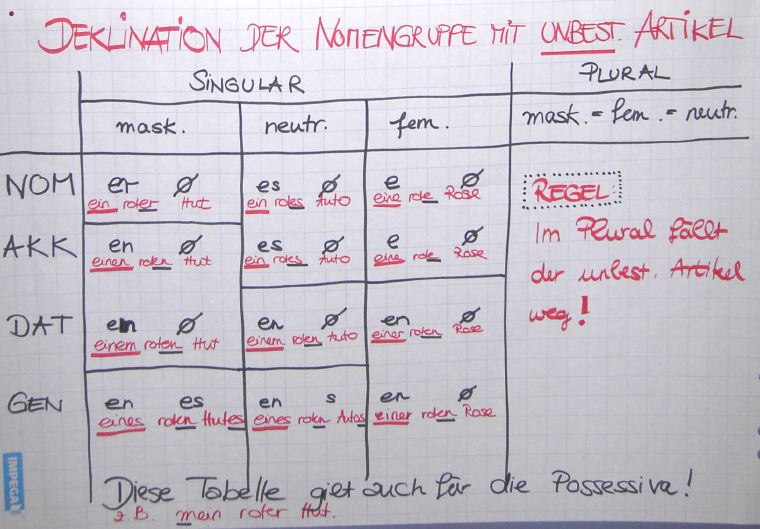 DEKLINATION DER NOMENGRUPPE MIT UNBEST. ARTIKEL
SINGULAR PLURAL
mask. neutr. fem. mask. = fem. = neutr.
NOM er ∅ es ∅ e ∅
ein roter Hut ein rotes Auto eine rote Rose
REGEL:
AKK en ∅ es ∅ e ∅
einen roten Hut ein rotes Auto eine rote Rose
Im Plural fällt
der unbest. Artikel
weg!
DAT en ∅ en ∅ en ∅
einem roten Hut einem roten Auto einer roten Rose
GEN en es en s en ∅
eines roten Hutes eines roten Autos einer roten Rose
Diese Tabelle gilt auch für die Possessiva!
z.B. mein roter Hut.
IMPEGA